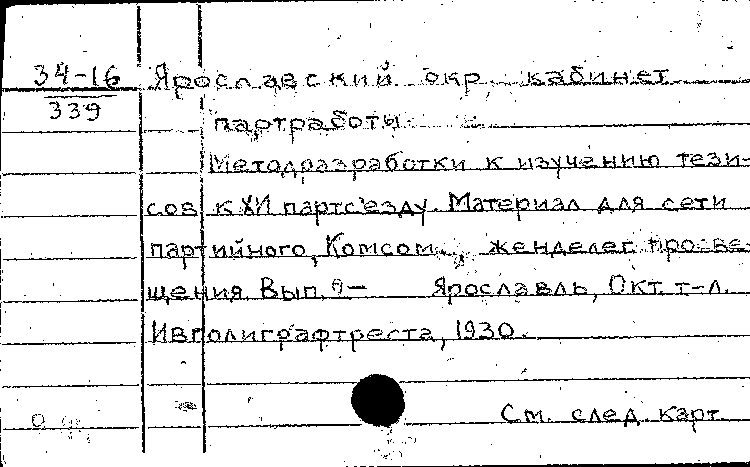 34-16 Ярославский окр. кабинет
339
партработы.
Методразработки к изучению тези-
сов к XVI партсъезду. Материал для сети
партийного, Комсом., женделег. просве-
щения. Вып. Ярославль, Окт. т-л.
Ивполиграфтреста, 1930.
См. след. карт.